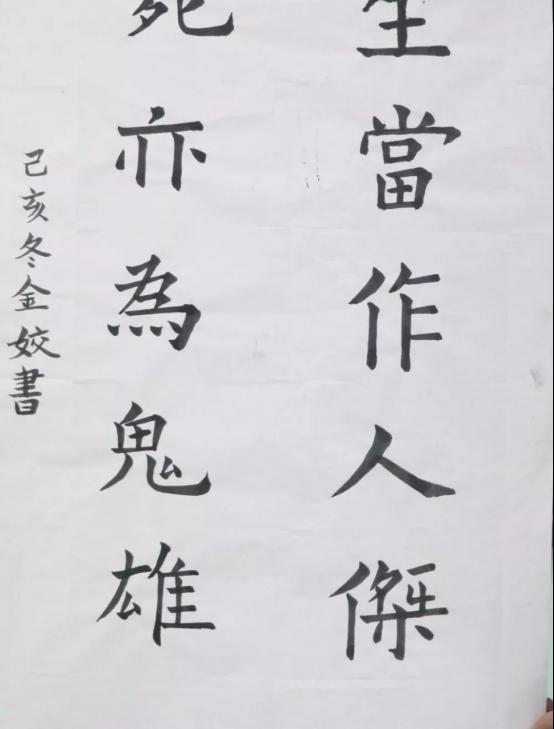 生當作人傑
死亦為鬼雄
己亥冬金姣書